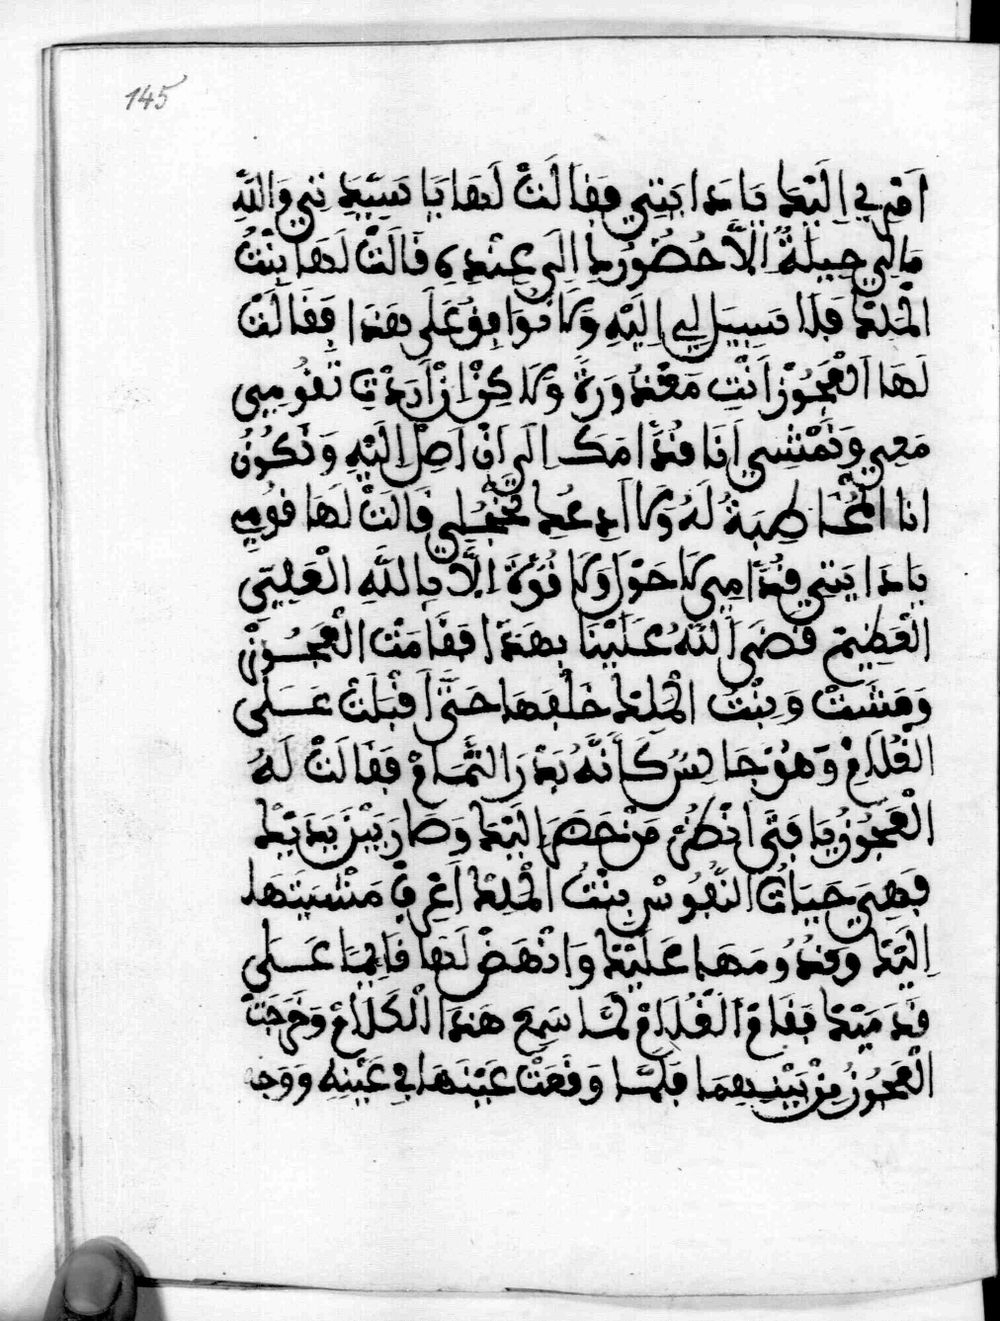 145
اَمْرِي اِلَيْكِ يَا دَايَتِي فَقَالَتْ لَهَا يَا سَيِّدَتِي وَاللَّهِ
مَا لِي حِيلَةٌ اِلَّا حُضُورُكِ اِلَى عِنْدِهِ قَالَتْ لَهَا بِنْتُ
الْمَلِكِ فَلَا سَبِيلَ لِي اِلَيْهِ وَلَا نُوَافِقُ عَلَى هَذَا فَقَالَتْ
لَهَا الْعَجُوزُ اَنْتِ مَعْذُورَةٌ وَلَاكِنْ اِنْ اَرَدْتِ تَقُومِي
مَعِي وَتَمْشِي اَنَا قُدَّامَكِ اِلَى اَنْ اَصِلْ اِلَيْهِ وَنَكُونُ
اَنَا الْمُخَاطِبَةُ لَهُ وَلَا اَدَعُكِ تَخْجَلِي قَالَتْ لَهَا قُومِي
يَا دَايَتِي قُدَّامِي لَا حَوْلَ وَلَا قُوَّةَ اِلَّا بِاللَّهِ الْعَلِيِّ
الْعَظِيمْ قَضَى اللَّهُ عَلَيْنَا بِهَذَا فَقَامَتْ الْعَجُوزْ
وَمَشَتْ وَبِنْتُ الْمَلِكِ خَلْفَهَا حَتَّى اَقْبَلَتْ عَلَى
الْغُلَامْ وَهُوَ جَالِسٌ كَاَنَّهُ بَدْرَ التَّمَامْ فَقَالَتْ لَهُ
الْعَجُوزُ يَا فَتَى اُنْظُرْ مَنْ حَضَرَ اِلَيْكَ وَصَارَ بَيْنَ يَدَيْكَ
فَهِيَ حَيَاتُ النُّفُوسْ بِنْتُ الْمَلِكِ اَعْرِفْ مَشْيَتَهَا
اِلَيْكَ وَقُدُومَهَا عَلَيْكَ وَانْهَضْ لَهَا قَايِمًا عَلَى
قَدَمَيْكَ فَقَامَ الْغُلَامْ لَمَّا سَمِعَ هَذَا الْكَلَامْ وَخَرَجَتْ
الْعَجُوزُ مِنْ بَيْنِهِمَا فَلَمَّا وَقَعَتْ عَيْنَهَا فِي عَيْنِهِ